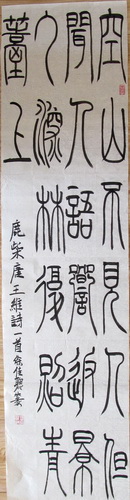 空山不見人但
聞人語響返景
入深林復照青
薹上
鹿柴唐王維詩一首徐佳